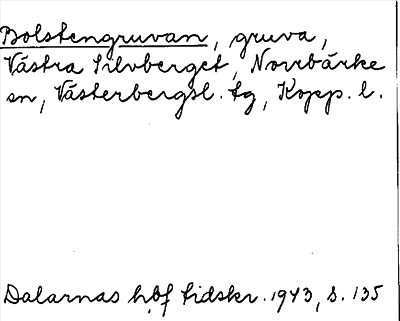 Bolstengruvan, gruva,
Västra Silvberget, Norrbärke
sn, Västerbergsl. tg, Kopp. l.
Dalarnas hbf tidskr. 1943, s. 135